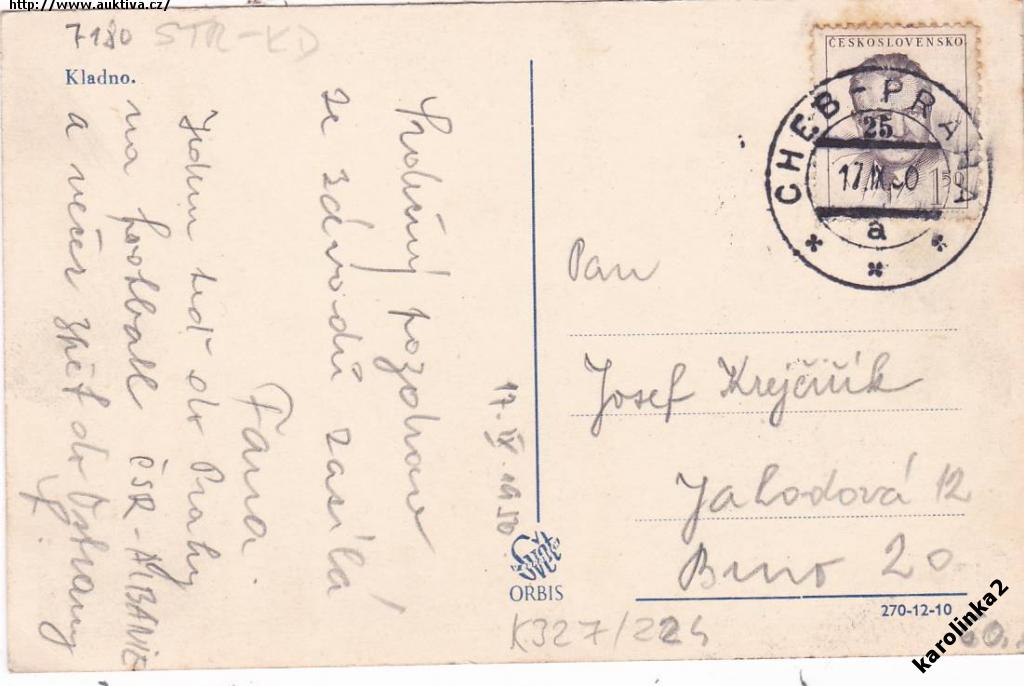 http://www.auktiva.cz/
7180 STR-KD
Kladno.
Srdečný pozdrav
ze závodů zasílá
Fana.
Jedem teď do Prahy
na football ČSR-ALBANIE
a večer zpět do Ostravy
17. IX. 1950.
ČESKOSLOVENSKO
1.50
CHEB-PRAHA
25
17.IX.50
a
Pan
Josef Krejčiřík
Jahodová 12
Brno 20.
Svět
ORBIS
270-12-10
K327/224
karolinka2